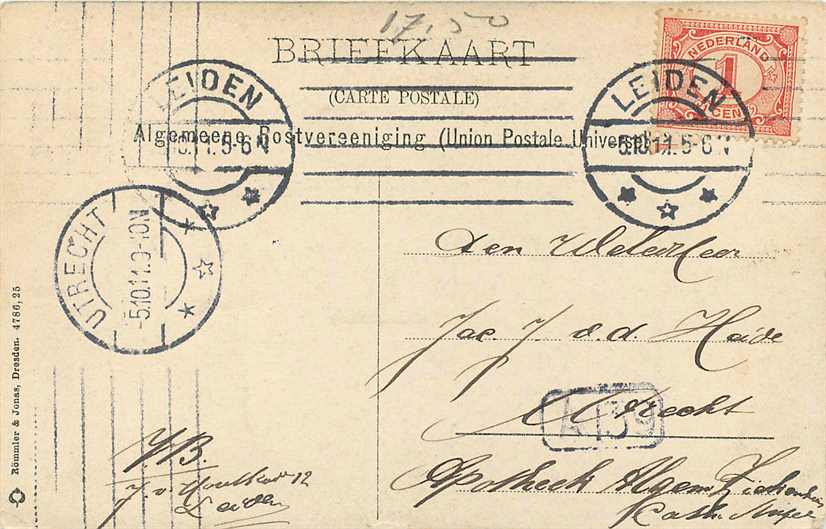 17,50
BRIEFKAART
(CARTE POSTALE)
Algemeene Postvereeniging (Union Postale Universelle)
NEDERLAND
1
CENT
LEIDEN
5.10.11.5-6N
LEIDEN
5.10.11.5-6N
UTRECHT
-5.10.11.9-10N
Den Weledelheer
Jac. J. v. d. Heide
Utrecht
Apotheek Algem. Ziekenhuis
Cath.
A 159
JVB
12
Leiden
Römmler & Jonas, Dresden. 4786,25